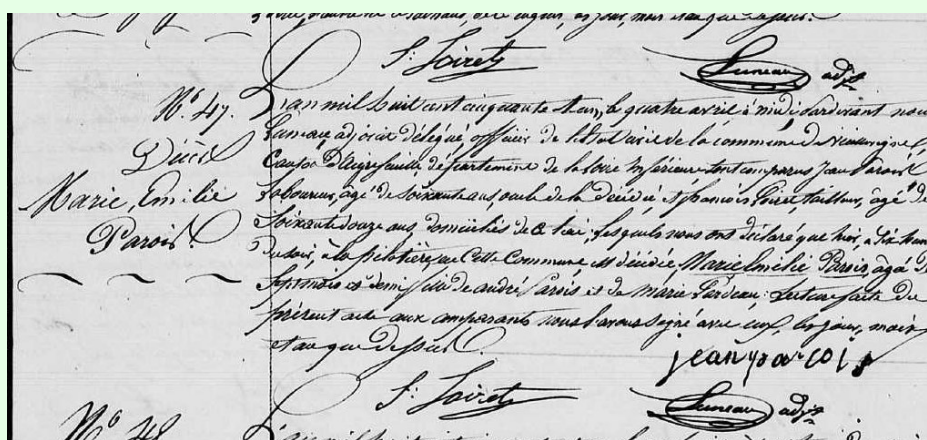 ce jour, mois et an que dessus.
f. Loirets
Luneau adjt
No. 47.
Décès
Marie Emilie
Parois.
L'an mil huit cent cinquante et un, le quatre avril à midi, pardevant nous
Luneau adjoint délégué officier de l'état civil de la commune de
Canton d'Aigrefeuille, département de la loire inférieure sont comparus Jean Parois
laboureur, âgé de soixante ans, oncle de la décédée, et françois Loiret, tailleur, âgé de
Soixante douze ans, domiciliés de ce lieu, lesquels nous ont déclaré que hier, à six heures
du soir, à la pelotière, en cette Commune est décédée Marie Emilie Parois, âgée de
sept mois et demi, fille de andré Parois et de marie Pardeau. Lecture faite du
présent acte aux comparants nous l'avons signé avec eux, les jour, mois
et an que dessus.
jean parois
f. Loirets
Luneau adjt
No 48
L'an mil huit cent cinquante